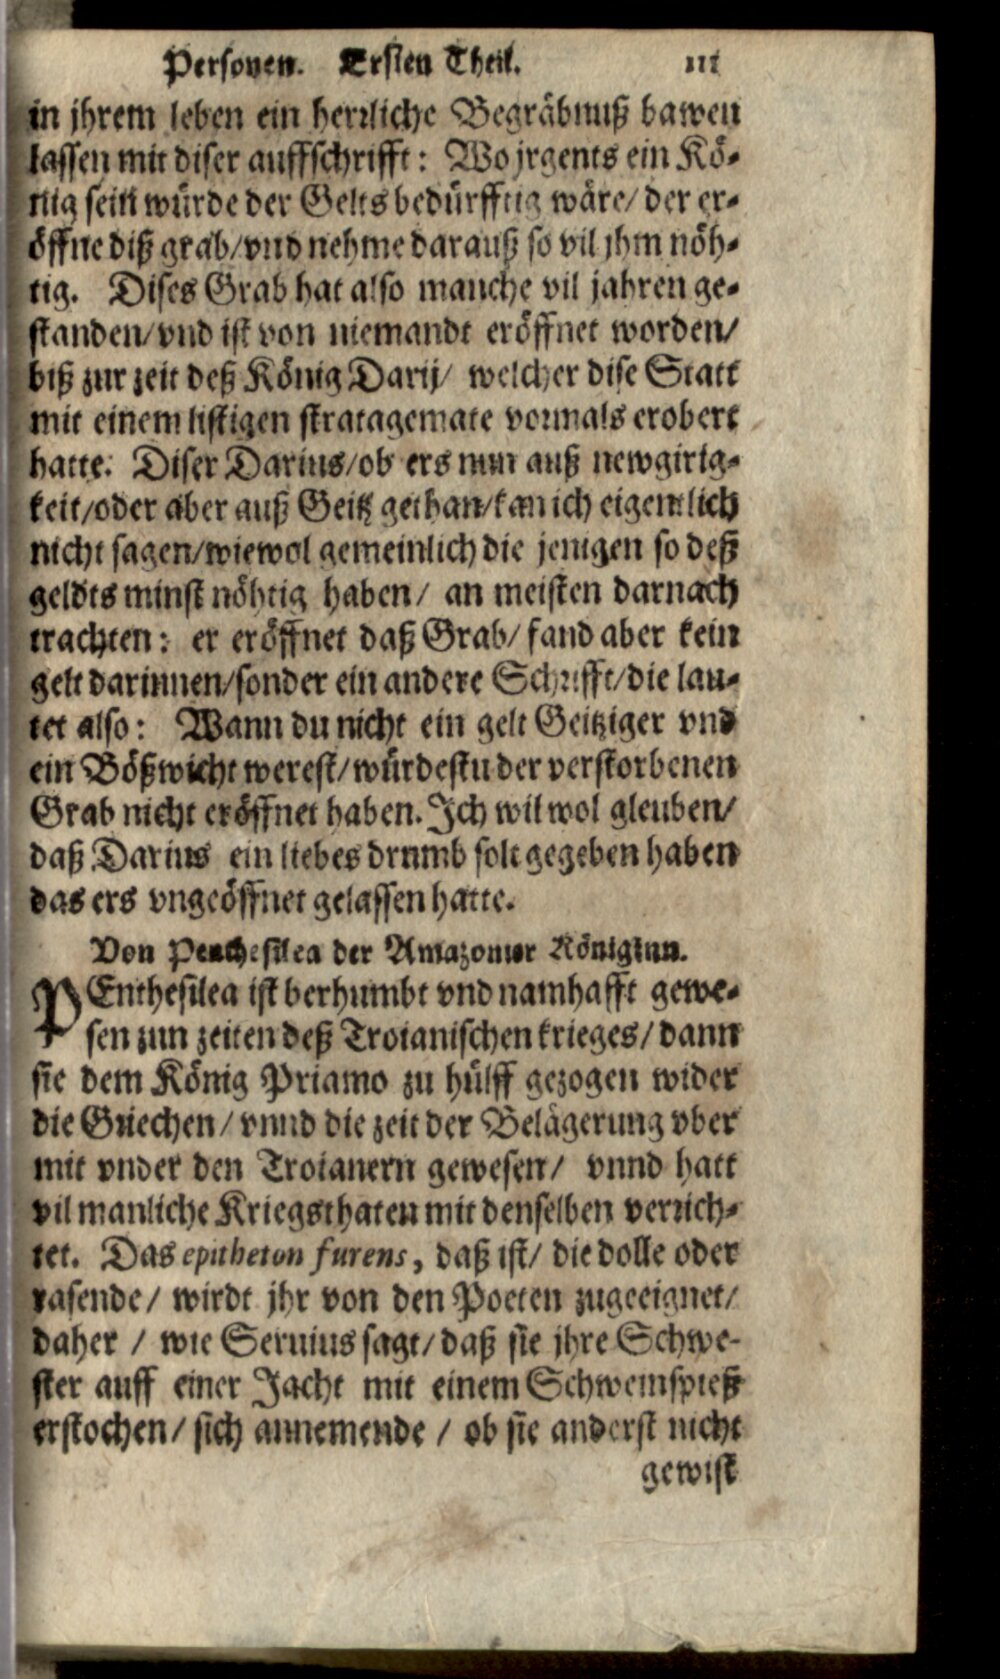 Personen. Ersten Theil. 111
in jhrem leben ein herrliche Begräbnuß bawen
lassen mit diser auffschrifft: Wo jrgents ein Kö-
nig sein würde der Gelts bedürfftig wäre/ der er-
öffne diß grab/vnd nehme darauß so vil jhm nöh-
tig. Dises Grab hat also manche vil jahren ge-
standen/vnd ist von niemandt eröffnet worden/
biß zur zeit deß König Darij/ welcher dise Statt
mit einem listigen stratagemate vormals erobert
hatte. Diser Darius/ob ers nun auß newgirig-
keit/oder aber auß Geitz gethan/kan ich eigentlich
nicht sagen/wiewol gemeinlich die jenigen so deß
geldts minst nöhtig haben/ an meisten darnach
trachten: er eröffnet daß Grab/ fand aber kein
gelt darinnen/sonder ein andere Schrifft/die lau-
tet also: Wann du nicht ein gelt Geitziger vnd
ein Bößwicht werest/würdestu der verstorbenen
Grab nicht eröffnet haben. Ich wil wol gleuben/
daß Darius ein liebes drumb solt gegeben haben
das ers vngeöffnet gelassen hatte.
Von Penthesilea der Amazoner Königinn.
PEnthesilea ist berhumbt vnd namhafft gewe-
sen zun zeiten deß Troianischen krieges/ dann
sie dem König Priamo zu hülff gezogen wider
die Griechen/ vnnd die zeit der Belägerung vber
mit vnder den Troianern gewesen/ vnnd hatt
vil manliche Kriegsthaten mit denselben verrich-
tet. Das epitheton furens, daß ist/ die dolle oder
rasende/ wirdt jhr von den Poeten zugeeignet/
daher / wie Seruius sagt/ daß sie jhre Schwe-
ster auff einer Jacht mit einem Schweinspieß
erstochen/ sich annemende / ob sie anderst nicht
gewist